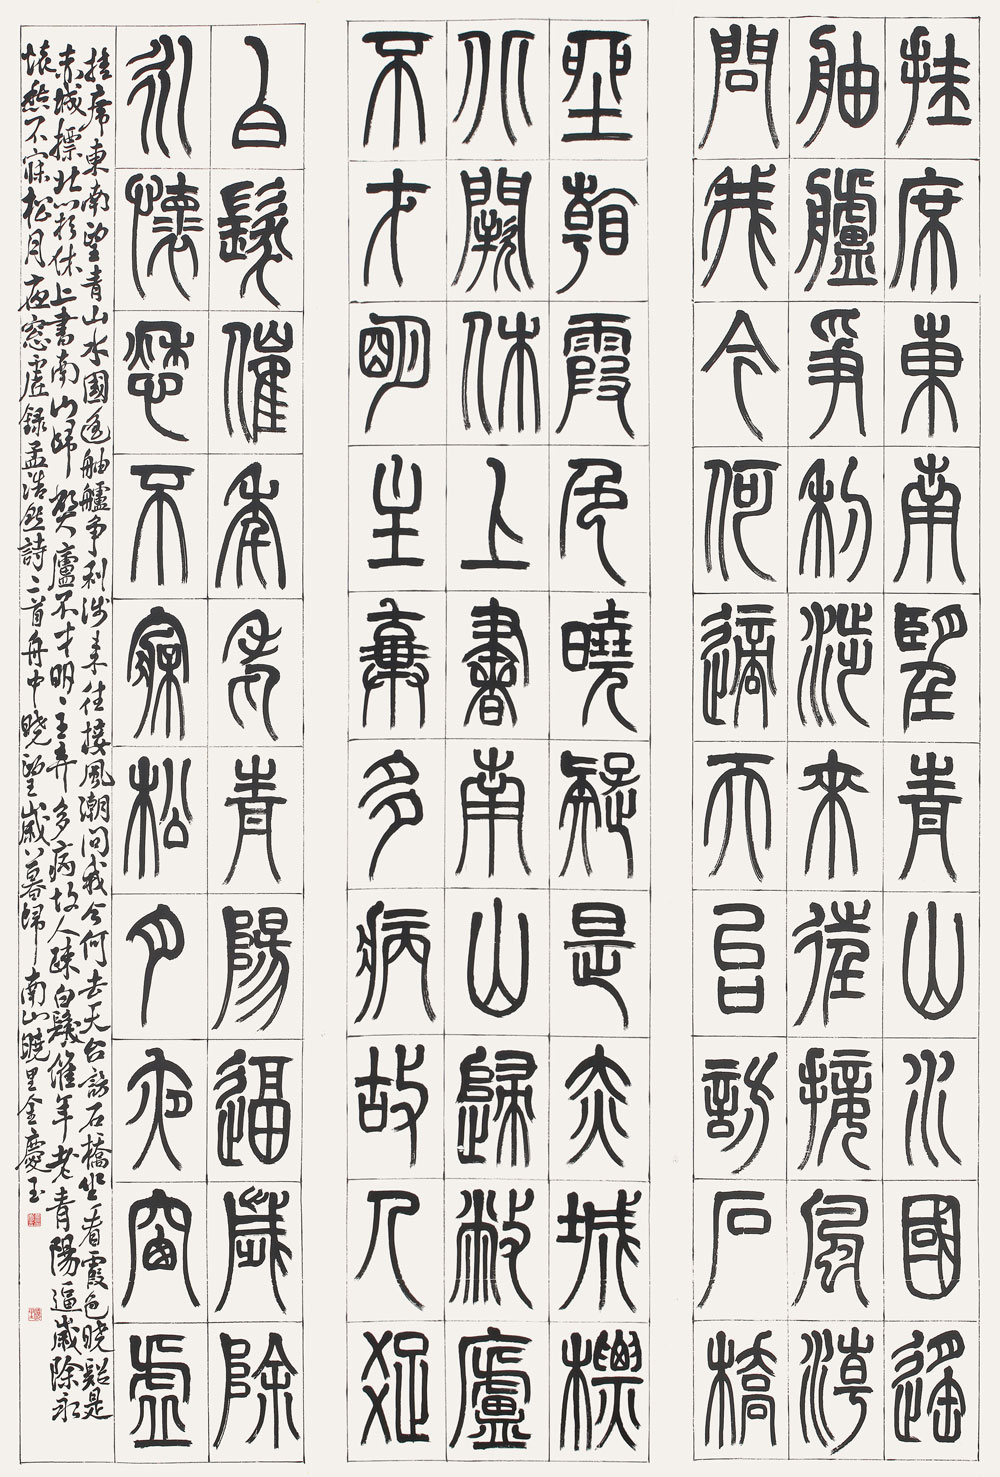 挂席東南望青山水國遥
舳艫爭利涉來往接風潮
問我今何適天台訪石橋
坐看霞色曉疑是赤城標
北闕休上書南山歸敝廬
不才明主棄多病故人疏
白髮催年老青陽逼歲除
永懷愁不寐松月夜窗虛
挂席東南望青山水國遥舳艫争利涉来往接風潮問我今何去天台訪石橋坐看霞色曉疑是
赤城標北闕休上書南山歸弊廬不才明主棄多病故人疎白髮催年老青陽逼歲除永
懷愁不寐松月夜窓虚録孟浩然詩二首舟中曉望歲暮歸南山曉里金慶玉